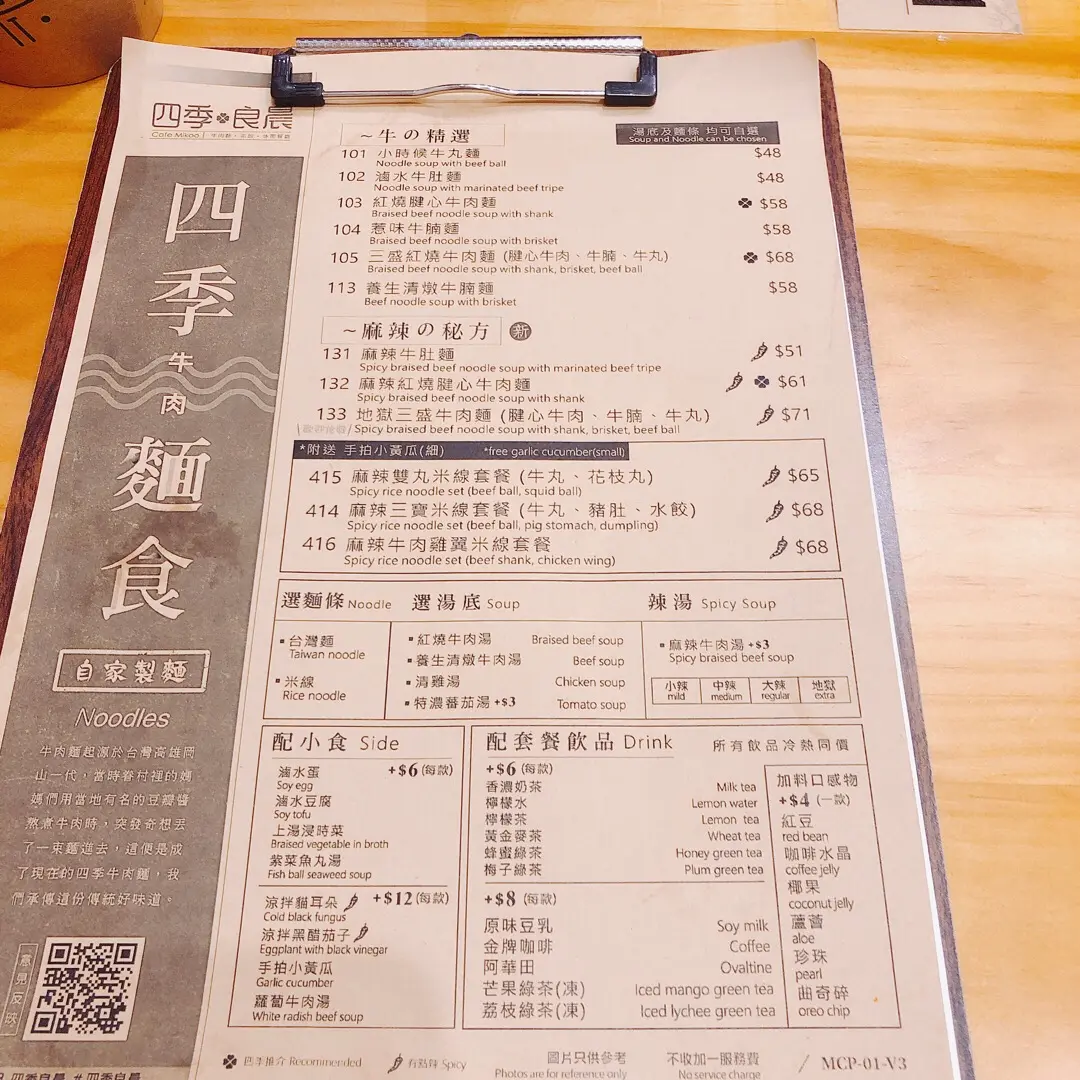 四季良晨
Cafe Mikoo
四季牛肉麵食
自家製麵
Noodles
牛肉麵起源於台灣高雄岡
山一代，當時眷村裡的媽
媽們用當地有名的豆瓣醬
熬煮牛肉時，突發奇想丟
了一束麵進去，這便是成
了現在的四季牛肉麵，我
們承傳這份傳統好味道。
意見反映
~牛の精選
湯底及麵條 均可自選
Soup and Noodle can be chosen
101 小時候牛丸麵 $48
Noodle soup with beef ball
102 滷水牛肚麵 $48
Noodle soup with marinated beef tripe
103 紅燒腱心牛肉麵 $58
Braised beef noodle soup with shank
104 惹味牛腩麵 $58
Braised beef noodle soup with brisket
105 三盛紅燒牛肉麵 (腱心牛肉、牛腩、牛丸) $68
Braised beef noodle soup with shank, brisket, beef ball
113 養生清燉牛腩麵 $58
Beef noodle soup with brisket
~麻辣の秘方 新
131 麻辣牛肚麵 $51
Spicy braised beef noodle soup with marinated beef tripe
132 麻辣紅燒腱心牛肉麵 $61
Spicy braised beef noodle soup with shank
133 地獄三盛牛肉麵 (腱心牛肉、牛腩、牛丸) $71
Spicy braised beef noodle soup with shank, brisket, beef ball
*附送 手拍小黃瓜(細) *free garlic cucumber(small)
415 麻辣雙丸米線套餐 (牛丸、花枝丸) $65
Spicy rice noodle set (beef ball, squid ball)
414 麻辣三寶米線套餐 (牛丸、豬肚、水餃) $68
Spicy rice noodle set (beef ball, pig stomach, dumpling)
416 麻辣牛肉雞翼米線套餐 $68
Spicy rice noodle set (beef shank, chicken wing)
選麵條 Noodle
▪台灣麵
Taiwan noodle
▪米線
Rice noodle
選湯底 Soup
▪紅燒牛肉湯 Braised beef soup
▪養生清燉牛肉湯 Beef soup
▪清雞湯 Chicken soup
▪特濃蕃茄湯+$3 Tomato soup
辣湯 Spicy Soup
▪麻辣牛肉湯+$3
Spicy braised beef soup
小辣 中辣 大辣 地獄
mild medium regular extra
配小食 Side
滷水蛋 +$6 (每款)
Soy egg
滷水豆腐
Soy tofu
上湯浸時菜
Braised vegetable in broth
紫菜魚丸湯
Fish ball seaweed soup
涼拌貓耳朵 +$12 (每款)
Cold black fungus
涼拌黑醋茄子
Eggplant with black vinegar
手拍小黃瓜
Garlic cucumber
蘿蔔牛肉湯
White radish beef soup
配套餐飲品 Drink 所有飲品冷熱同價
+$6 (每款)
香濃奶茶 Milk tea
檸檬水 Lemon water
檸檬茶 Lemon tea
黃金麥茶 Wheat tea
蜂蜜綠茶 Honey green tea
梅子綠茶 Plum green tea
+$8 (每款)
原味豆乳 Soy milk
金牌咖啡 Coffee
阿華田 Ovaltine
芒果綠茶(凍) Iced mango green tea
荔枝綠茶(凍) Iced lychee green tea
加料口感物
+$4 (一款)
紅豆
red bean
咖啡水晶
coffee jelly
椰果
coconut jelly
蘆薈
aloe
珍珠
pearl
曲奇碎
oreo chip
四季推介 Recommended
有點辣 Spicy
圖片只供參考
Photos are for reference only
不收加一服務費
No service charge
/ MCP-01-V3
#四季良晨